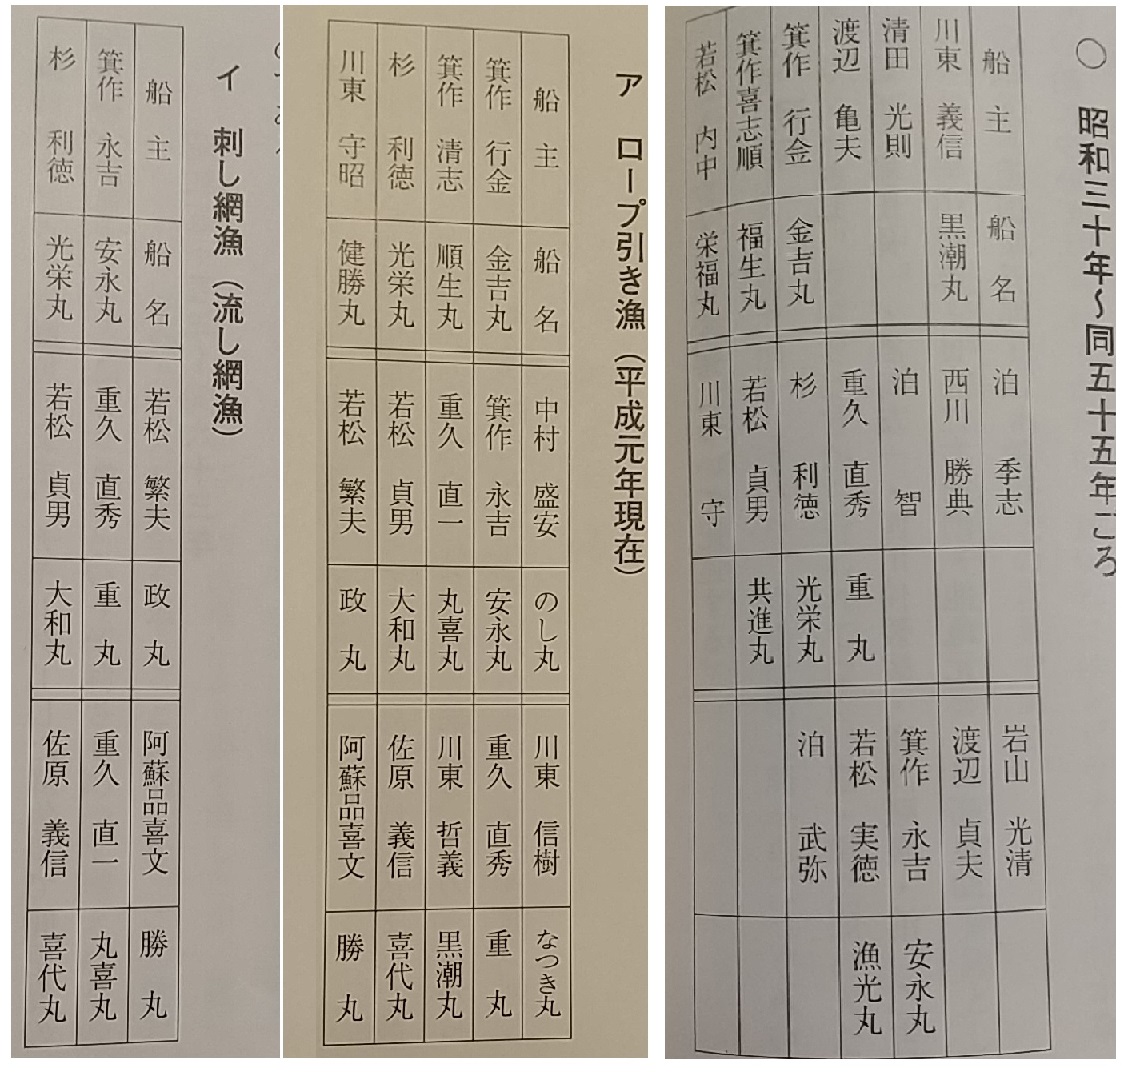 ○ 昭和三十年～同五十五年ごろ
船主 船名 泊 季志 岩山 光清
川東 義信 黒潮丸 西川 勝典 渡辺 貞夫
清田 光則 泊 智 箕作 永吉 安永丸
渡辺 亀夫 重久 直秀 重丸 若松 実徳 漁光丸
箕作 行金 金吉丸 杉 利徳 光栄丸 泊 武弥
箕作喜志順 福生丸 若松 貞男 共進丸
若松 内中 栄福丸 川東 守
ア ロープ引き漁（平成元年現在）
船主 船名 中村 盛安 のし丸 川東 信樹 なつき丸
箕作 行金 金吉丸 箕作 永吉 安永丸 重久 直秀 重丸
箕作 清志 順生丸 重久 直一 丸喜丸 川東 哲義 黒潮丸
杉 利徳 光栄丸 若松 貞男 大和丸 佐原 義信 喜代丸
川東 守昭 健勝丸 若松 繁夫 政丸 阿蘇品喜文 勝丸
イ 刺し網漁（流し網漁）
船主 船名 若松 繁夫 政丸 阿蘇品喜文 勝丸
箕作 永吉 安永丸 重久 直秀 重丸 重久 直一 丸喜丸
杉 利徳 光栄丸 若松 貞男 大和丸 佐原 義信 喜代丸